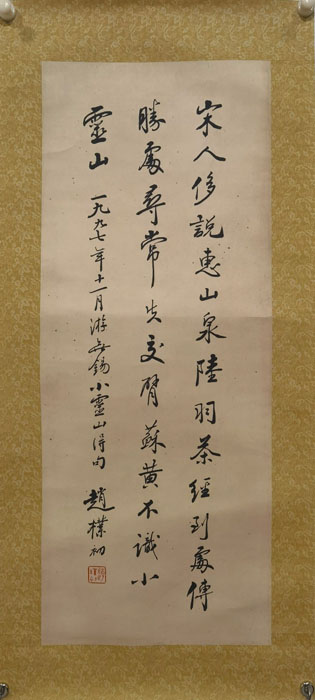 宋人侈說惠山泉陸羽茶經到處傳
勝處尋常失交臂蘇黃不識小
靈山 一九九七年十一月游無錫小靈山得句 趙樸初